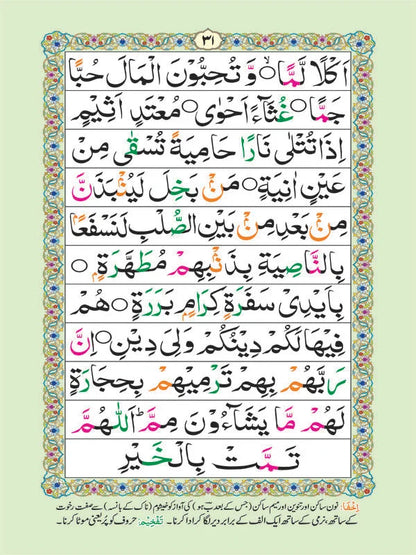 ٣١
اَكْلًا لَّمًّا ۙ وَّ تُحِبُّوْنَ الْمَالَ حُبًّا
جَمًّا ○ غُثَآءً اَحْوٰى ○ مُعْتَدٍ اَثِيْمٍ
اِذَا تُتْلٰى نَارًا حَامِيَةً تُسْقٰى مِنْ
عَيْنٍ اٰنِيَةٍ ○ مَنْۢ بَخِلَ لَيُنْۢبَذَنَّ
مِنْۢ بَعْدِ مِنْۢ بَيْنِ الصُّلْبِ لَنَسْفَعًۢا
بِالنَّاصِيَةِ بِذَنْۢبِهِمْ مُطَهَّرَةٍۭ ○
بِاَيْدِىْ سَفَرَةٍ كِرَامٍۭ بَرَرَةٍ ○ هُمْ
فِيْهَا لَكُمْ دِيْنُكُمْ وَلِىَ دِيْنِ ○ اِنَّ
رَبَّهُمْ بِهِمْ تَرْمِيْهِمْ بِحِجَارَةٍ
لَهُمْ مَّا يَشَآءُوْنَ مِمَّ ؕ اَللّٰهُمَّ
تَمَّت بِالْخَيْرِ
اِخفَا: نون ساکن اور تنوین اور میم ساکن (جس کے بعد ب ہو) کی آواز کو خیشوم (ناک کے بانسہ) سے صفت رخوت
کے ساتھ، نرمی کے ساتھ ایک الف کے برابر دیر لگا کر ادا کرنا۔ تَفْخِیْم: حروف کو پُر یعنی موٹا کرنا۔